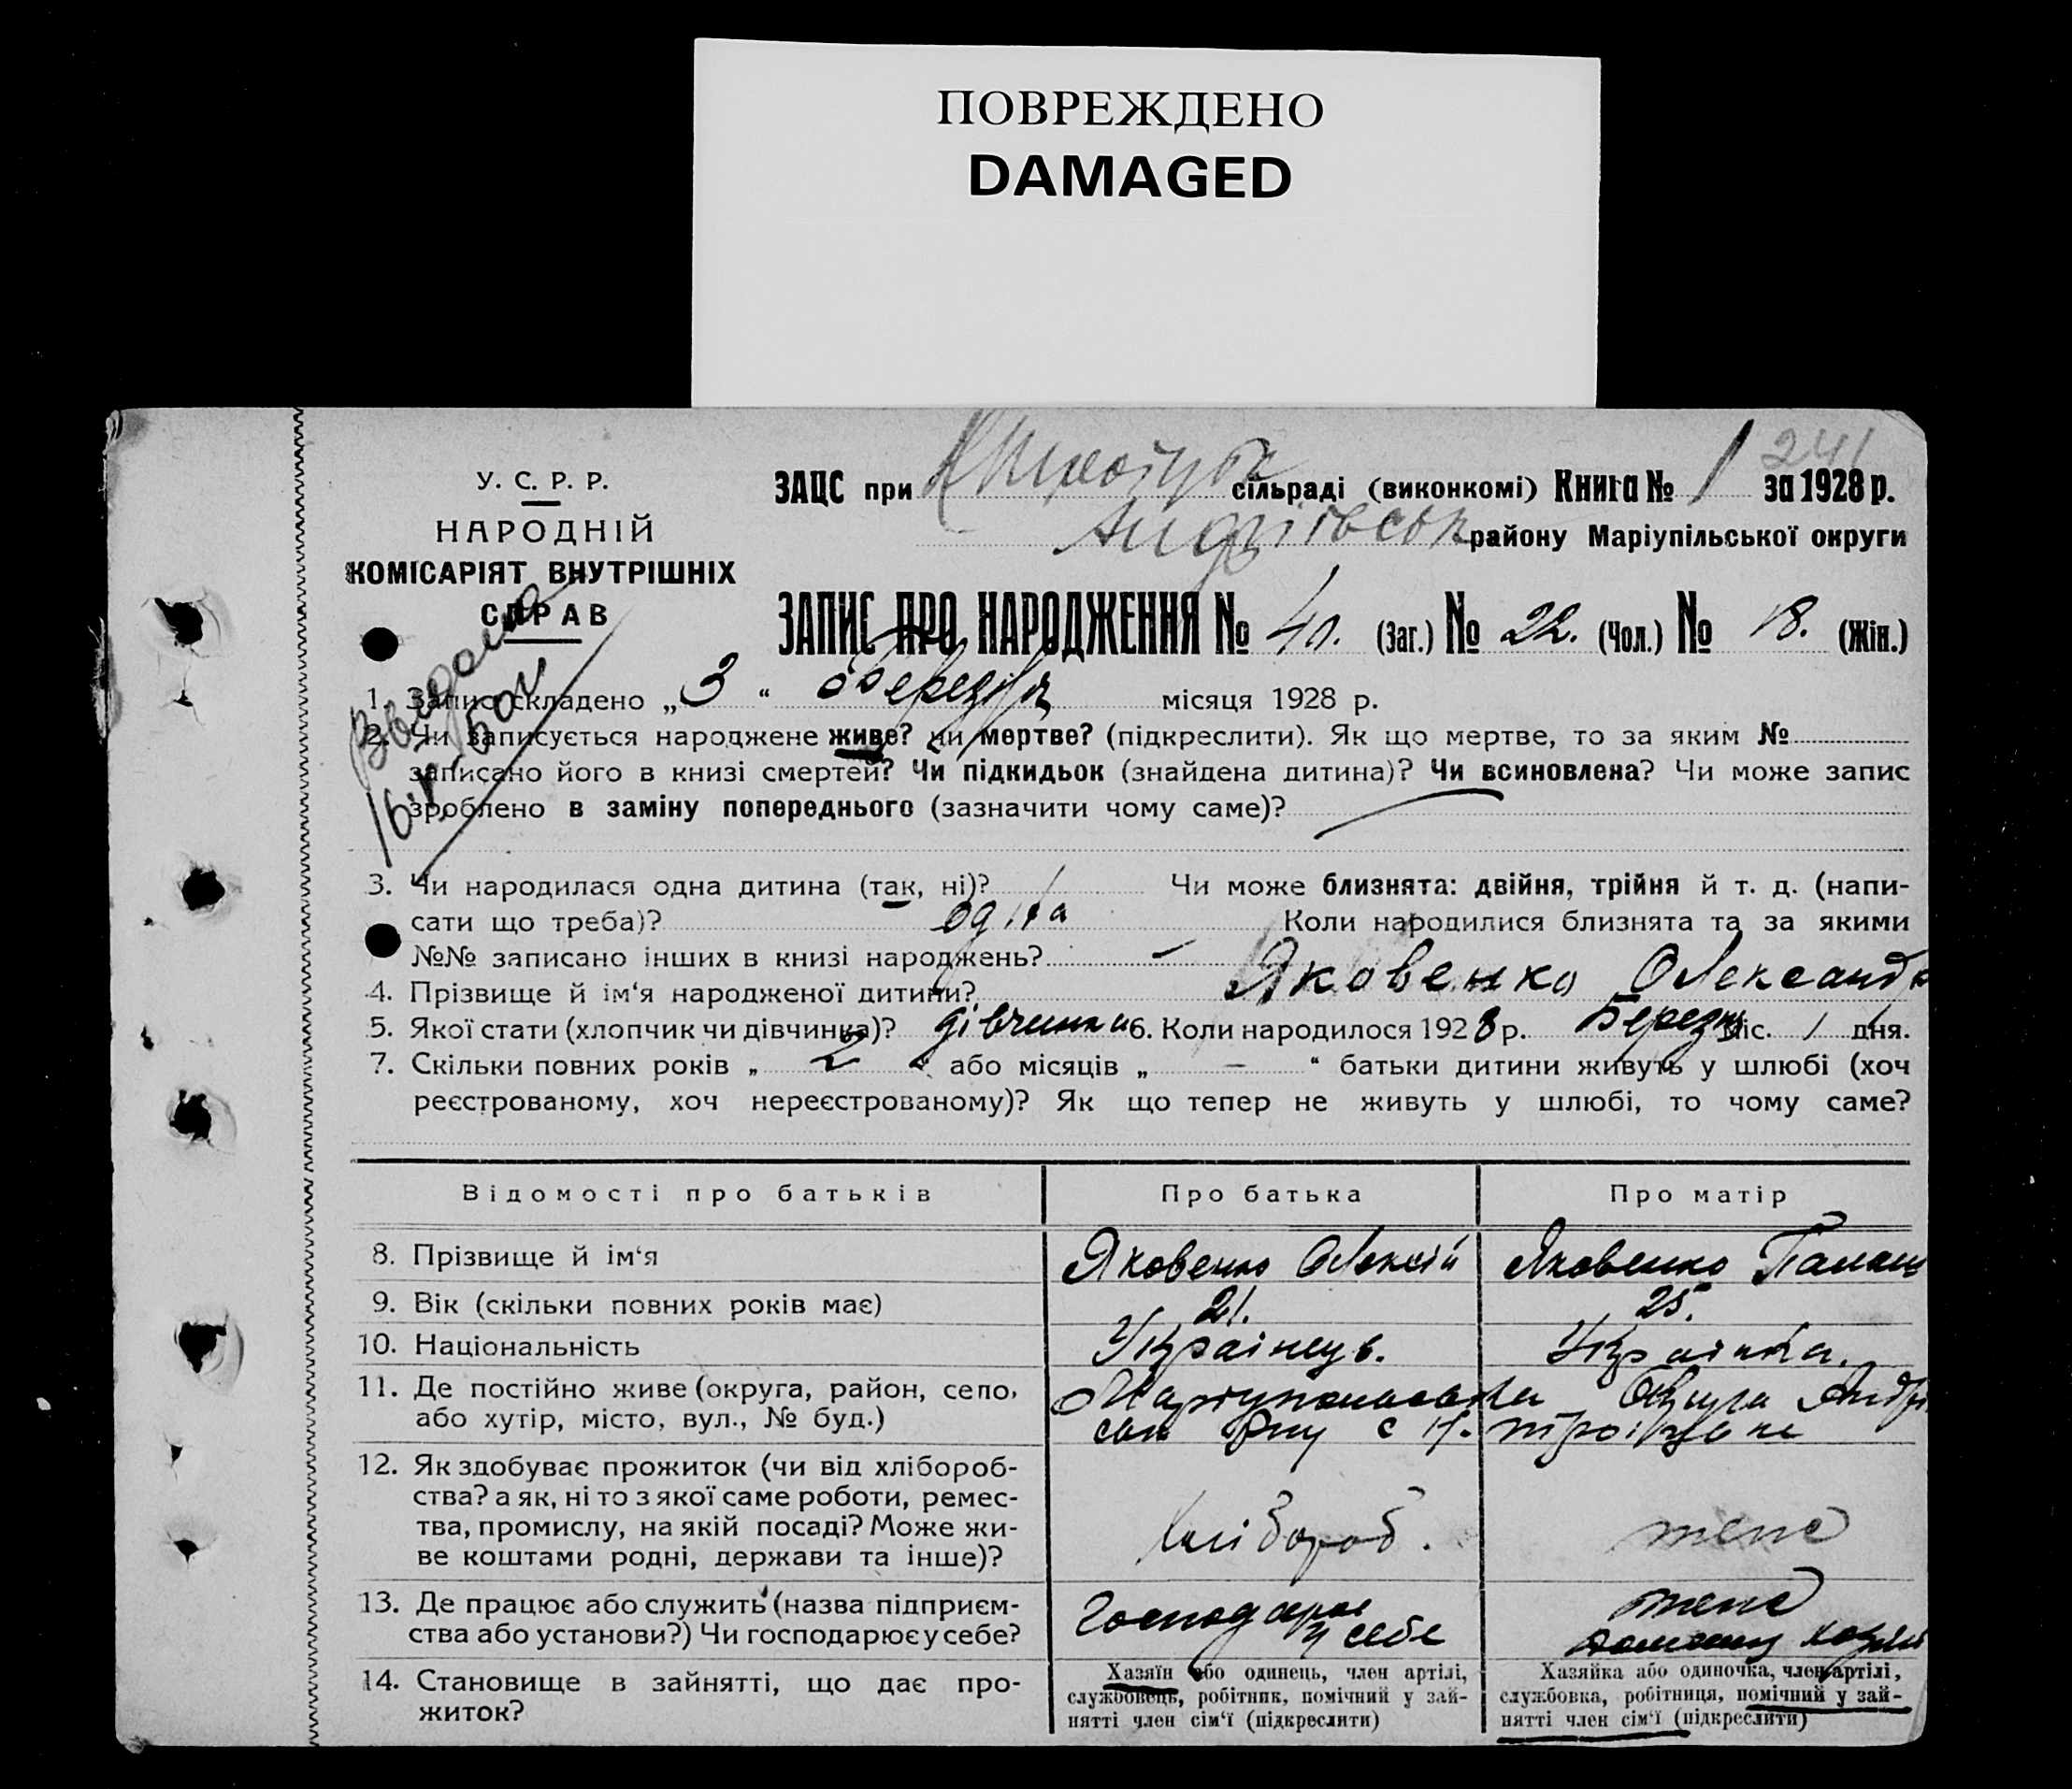 ПОВРЕЖДЕНО
DAMAGED
241
У. С. Р. Р.
НАРОДНІЙ
КОМІСАРІЯТ ВНУТРІШНІХ
СПРАВ
ЗАЦС при сільраді (виконкомі) Книга № 1 за 1928 р.
Андріївськ району Маріупільської округи
ЗАПИС ПРО НАРОДЖЕННЯ № 40. (Заг.) № 22. (Чол.) № 18. (Жін.)
1. Запис складено „3“ Березіля місяця 1928 р.
2. Чи записується народжене живе? чи мертве? (підкреслити). Як що мертве, то за яким №
записано його в книзі смертей? Чи підкидьок (знайдена дитина)? Чи всиновлена? Чи може запис
зроблено в заміну попереднього (зазначити чому саме)?
3. Чи народилася одна дитина (так, ні)? Чи може близнята: двійня, трійня й т. д. (напи-
сати що треба)? одна Коли народилися близнята та за якими
№№ записано інших в книзі народжень? —
4. Прізвище й ім‘я народженої дитини? Яковенко Олександра
5. Якої стати (хлопчик чи дівчинка)? дівчинка 6. Коли народилося 1928 р. Березня міс. 1 дня.
7. Скільки повних років „ 2 “ або місяців „ — “ батьки дитини живуть у шлюбі (хоч
реєстрованому, хоч нереєстрованому)? Як що тепер не живуть у шлюбі, то чому саме?
Відомості про батьків Про батька Про матір
8. Прізвище й ім‘я Яковенко Олексій Яковенко
9. Вік (скільки повних років має) 21. 25.
10. Національність Українець. Українка.
11. Де постійно живе (округа, район, село,
або хутір, місто, вул., № буд.)
Округа Андрі
12. Як здобуває прожиток (чи від хлібороб-
ства? а як, ні то з якої саме роботи, ремес-
тва, промислу, на якій посаді? Може жи-
ве коштами родні, держави та інше)?
Хлібороб. жена
13. Де працює або служить (назва підприєм-
ства або установи?) Чи господарює у себе?
Господарює у себе жена
14. Становище в зайнятті, що дає про-
житок?
Хазяїн або одинець, член артілі,
службовець, робітник, помічний у зай-
нятті член сім‘ї (підкреслити)
Хазяйка або одиночка, член артілі,
службовка, робітниця, помічний у зай-
нятті член сім‘ї (підкреслити)